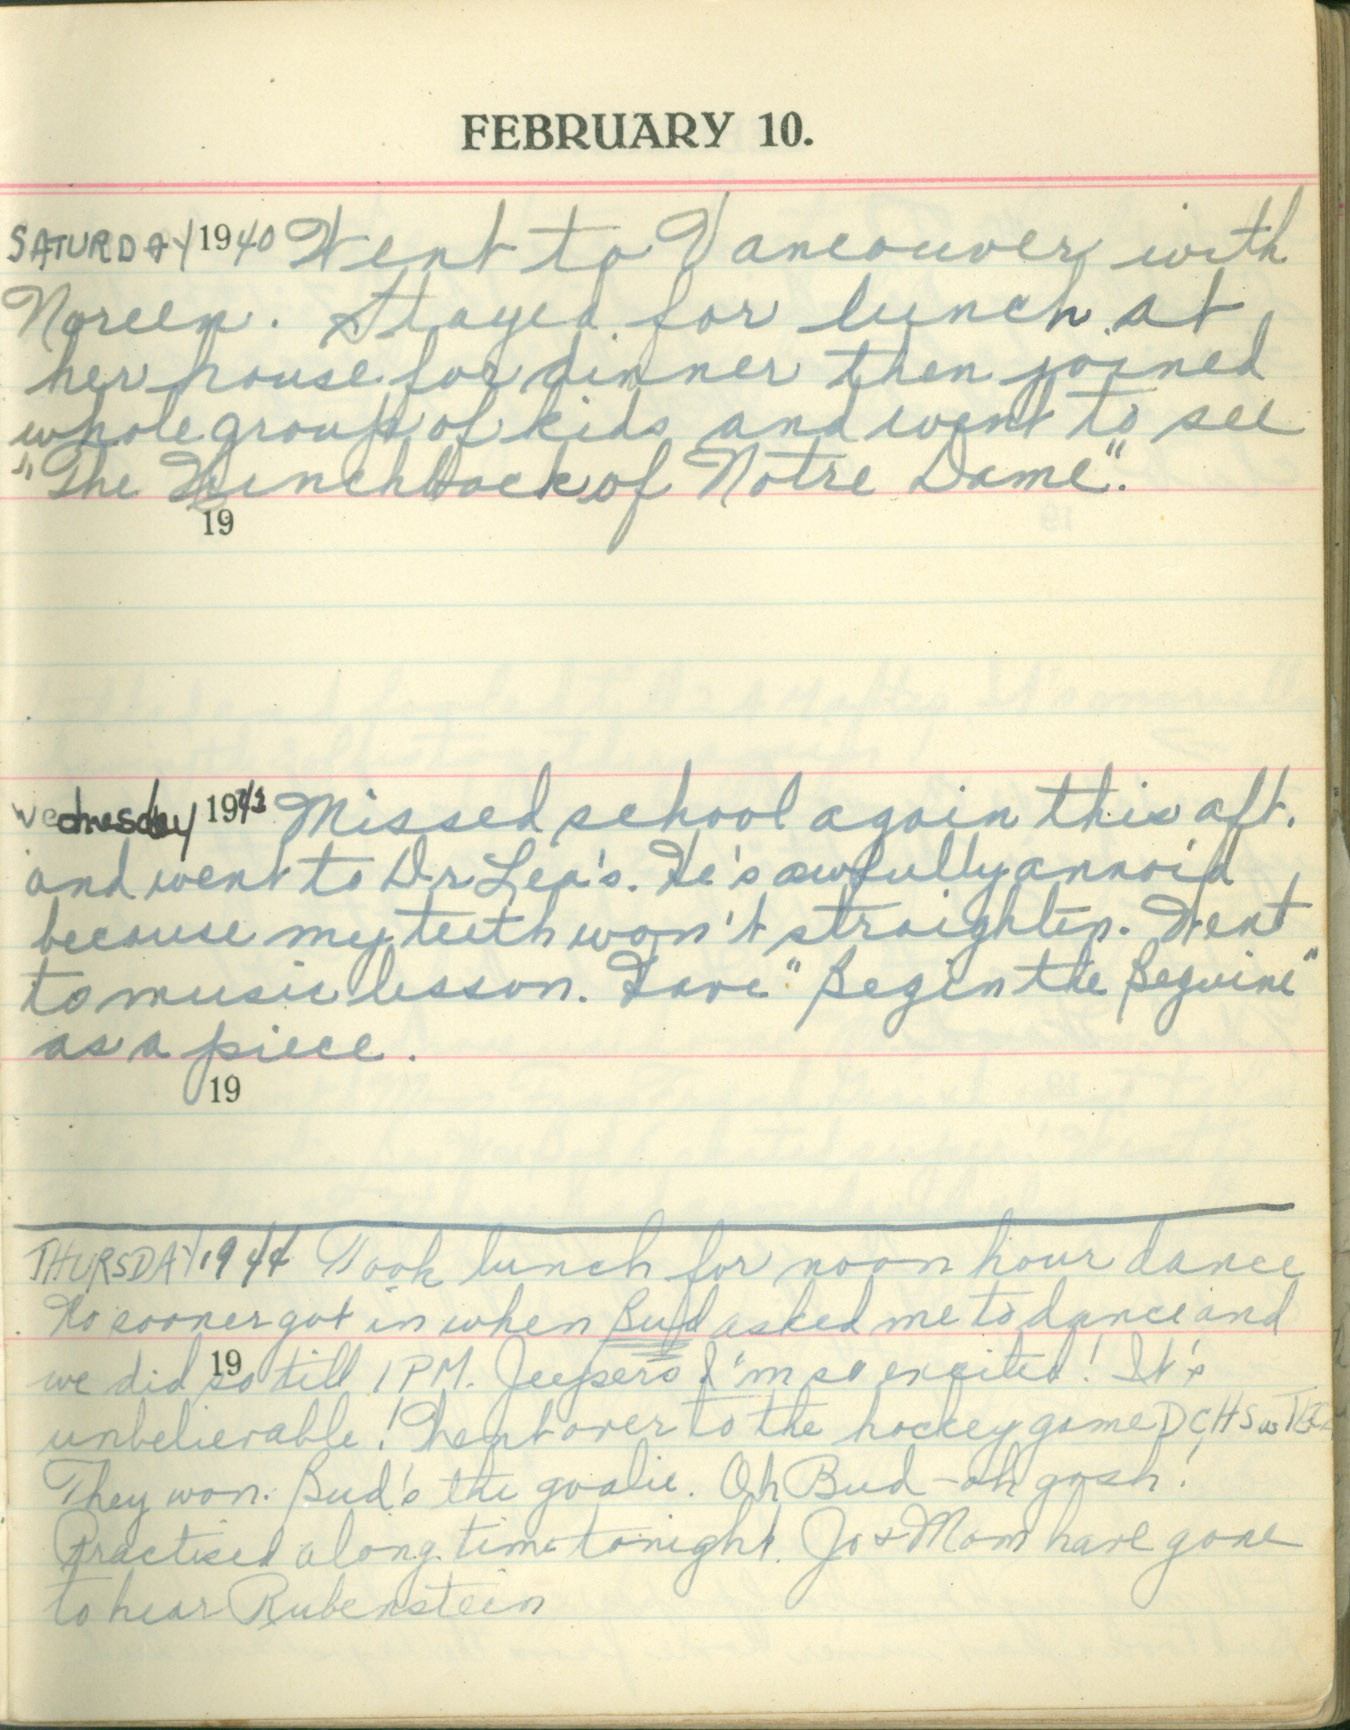 FEBRUARY 10.
SATURDAY 1940 Went to Vancouver with
Noreen. Stayed for lunch at
her house for dinner then joined
whole group of kids and went to see
"The Hunchback of Notre Dame".
19
Wednesday 1943 Missed school again this aft.
and went to Dr Lea's. He's awfully annoid
because my teeth won't straighten. Went
to music lesson. Have "Begin the Beguine"
as a piece.
19
THURSDAY 1944 Took lunch for noon hour dance
No sooner got in when Bud asked me to dance and
19
we did so till 1 PM. Jeepers I'm so excited! It's
unbelievable! Went over to the hockey game DCHS vs
They won. Bud's the goalie. Oh Bud - oh gosh!
Practised along time tonight. Jo & Mom have gone
to hear Rubenstein